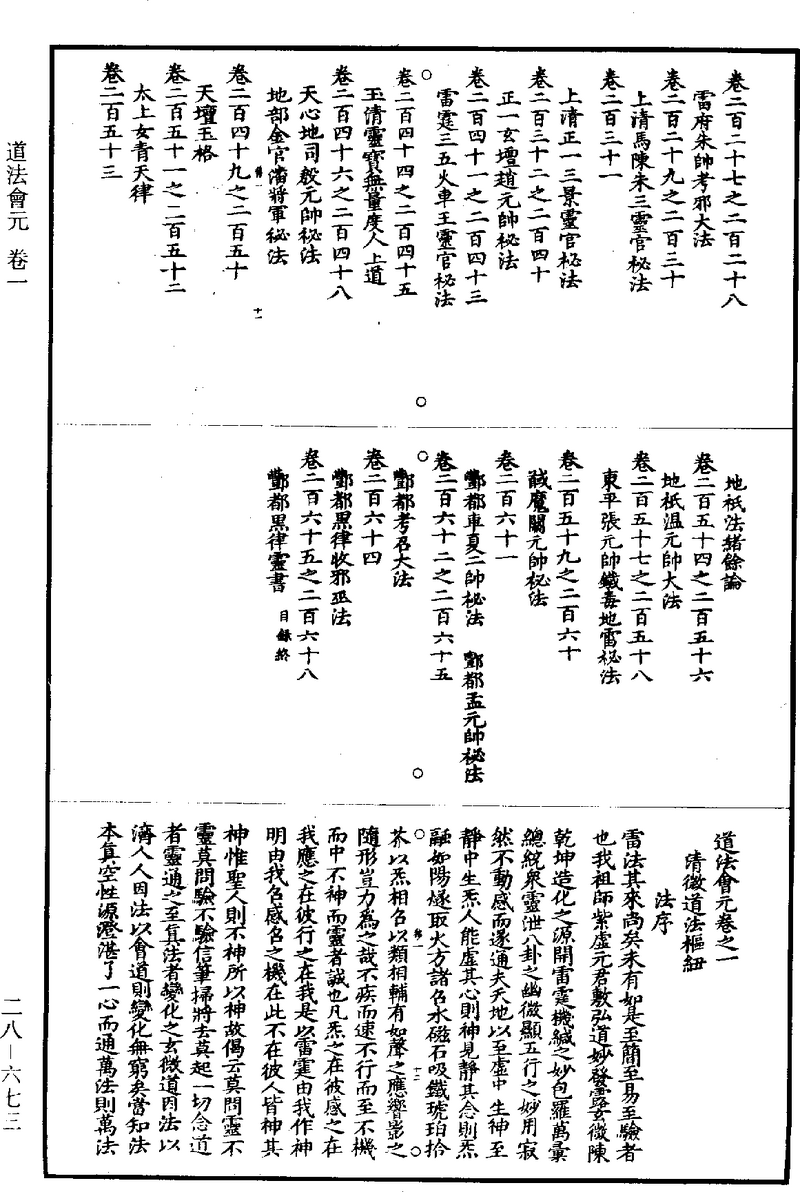 道法會元 卷一
卷二百二十七之二百二十八
雷府朱帥考邪大法
卷二百二十九之二百三十
上清馬陳朱三靈官秘法
卷二百三十一
上清正一三景靈官秘法
卷二百三十二之二百四十
正一玄壇趙元帥秘法
卷二百四十一之二百四十三
雷霆三五火車王靈官秘法
卷二百四十四之二百四十五
玉清靈寶無量度人上道
卷二百四十六之二百四十八
天心地司殷元帥秘法
地部金官潘將軍秘法
卷二百四十九之二百五十
天壇玉格
卷二百五十一之二百五十二
太上女青天律
卷二百五十三
地祇法緒餘論
卷二百五十四之二百五十六
地祇溫元帥大法
卷二百五十七之二百五十八
東平張元帥鐵毒地雷秘法
卷二百五十九之二百六十
馘魔關元帥秘法
卷二百六十一
酆都車夏二帥秘法 酆都孟元帥秘法
卷二百六十二之二百六十五
酆都考召大法
卷二百六十四
酆都黑律收邪巫法
卷二百六十五之二百六十八
酆都黑律靈書 目錄終
道法會元卷之一
清微道法樞紐
法序
雷法其來尚矣未有如是至簡至易至驗者
也我祖師紫虛元君敷弘道妙發露玄微陳
乾坤造化之源開雷霆機緘之妙包羅萬彙
總統衆靈泄八卦之幽微顯五行之妙用寂
然不動感而遂通夫天地以至虛中生神至
靜中生炁人能虛其心則神見靜其念則炁
融如陽燧取火方諸召水磁石吸鐵琥珀拾
芥以炁相召以類相輔有如聲之應響影之
隨形豈力為之哉不疾而速不行而至不機
而中不神而靈者誠也凡炁之在彼感之在
我應之在彼行之在我是以雷霆由我作神
明由我召感召之機在此不在彼人皆神其
神惟聖人則不神所以神故偈云莫問靈不
靈莫問驗不驗信筆掃將去莫起一切念道
者靈通之至真法者變化之玄微道因法以
濟人人因法以會道則變化無窮矣當知法
本真空性源澄湛了一心而通萬法則萬法
十一
十二
二八－六七三